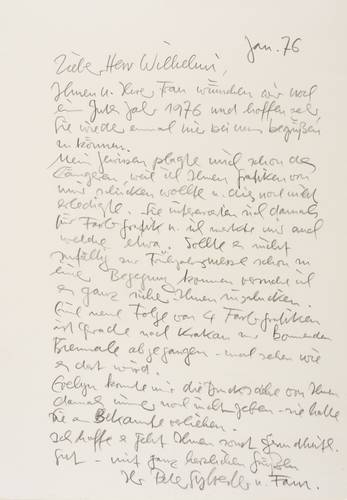 Jan. 76
Lieber Herr Wilhelmi,
Ihnen u. Ihrer Frau wünschen wir noch
ein Gutes Jahr 1976 und hoffen sehr
Sie wieder einmal hier bei uns begrüßen
zu können.
Mein Gewissen plagte mich schon des
Längeren, weil ich Ihnen Grafiken von
mir schicken wollte u. dies noch nicht
erledigte. Sie interessierten sich damals
für Farbgrafik u. ich merkte mir auch
welche etwa. Sollte es nicht
zufällig zur Frühjahrsmesse schon zu
einer Begegnung kommen versuche ich
es ganz sicher Ihnen zuzuschicken.
Eine neue Folge von 4 Farbgrafiken
ist gerade nach Krakau zur kommenden
Biennale abgegangen - mal sehen wie
es dort wird.
Evelyn konnte mir die Drucksache von Ihnen
damals immer noch nicht geben - sie hatte
sie an Bekannte verliehen.
Ich hoffe es geht Ihnen sonst gesundheitl.
gut - mit ganz herzlichen Grüßen
Ihr Peter Sylvester u. Fam.